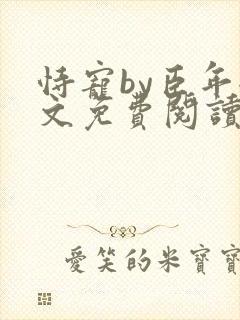 恃寵by臣年
文免費閱讀
愛笑的米寶寶